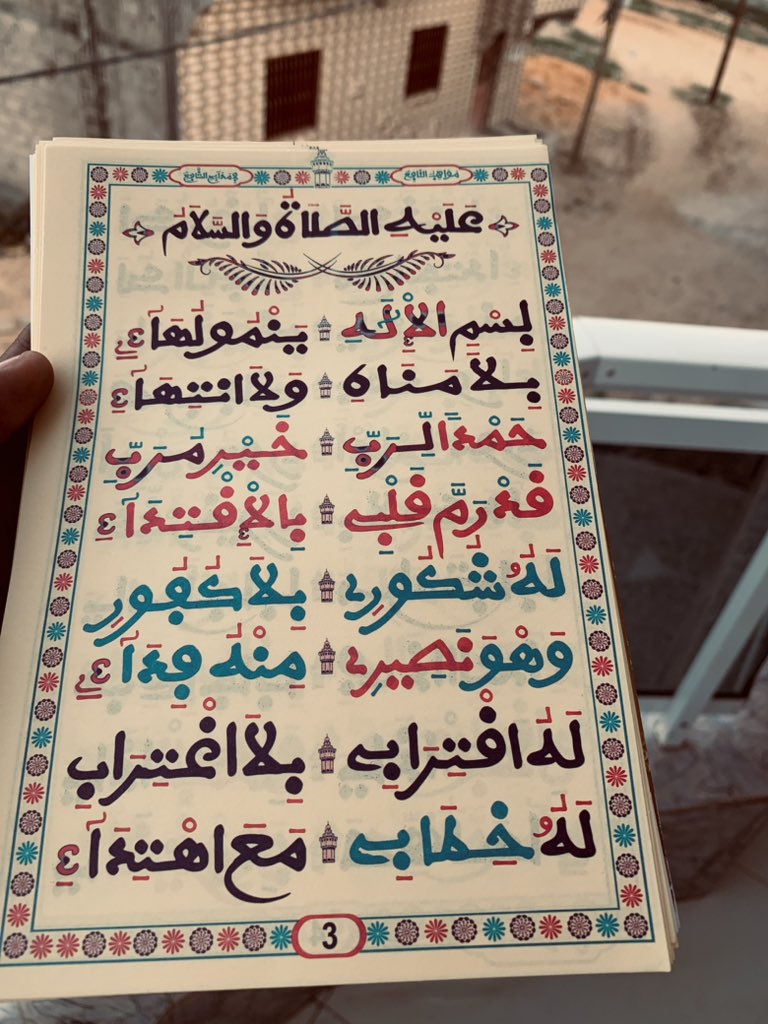 مواهب النافع في مدائح الشافع
عَلَيْهِ الصَّلَاةُ وَالسَّلَامُ
بِسْمِ الْإِلَهِ يَنْمُو لَهَآءِ
بِلَا مَنَاهٍ وَلَا انْتِهَآءِ
حَمْدًا لِّرَبِّي خَيْرِ مُرَبِّ
قَدْ رَمَّ قَلْبِي بِالْاِقْتِدَآءِ
لَهُ شُكُورِي بِلَا كُفُورِ
وَهْوَ نَصِيرِي مِنْهُ فِدَآءِ
لَهُ اقْتِرَابِي بِلَا اغْتِرَابِ
لَهُ خِطَابِي مَعَ اهْتِدَآءِ
3